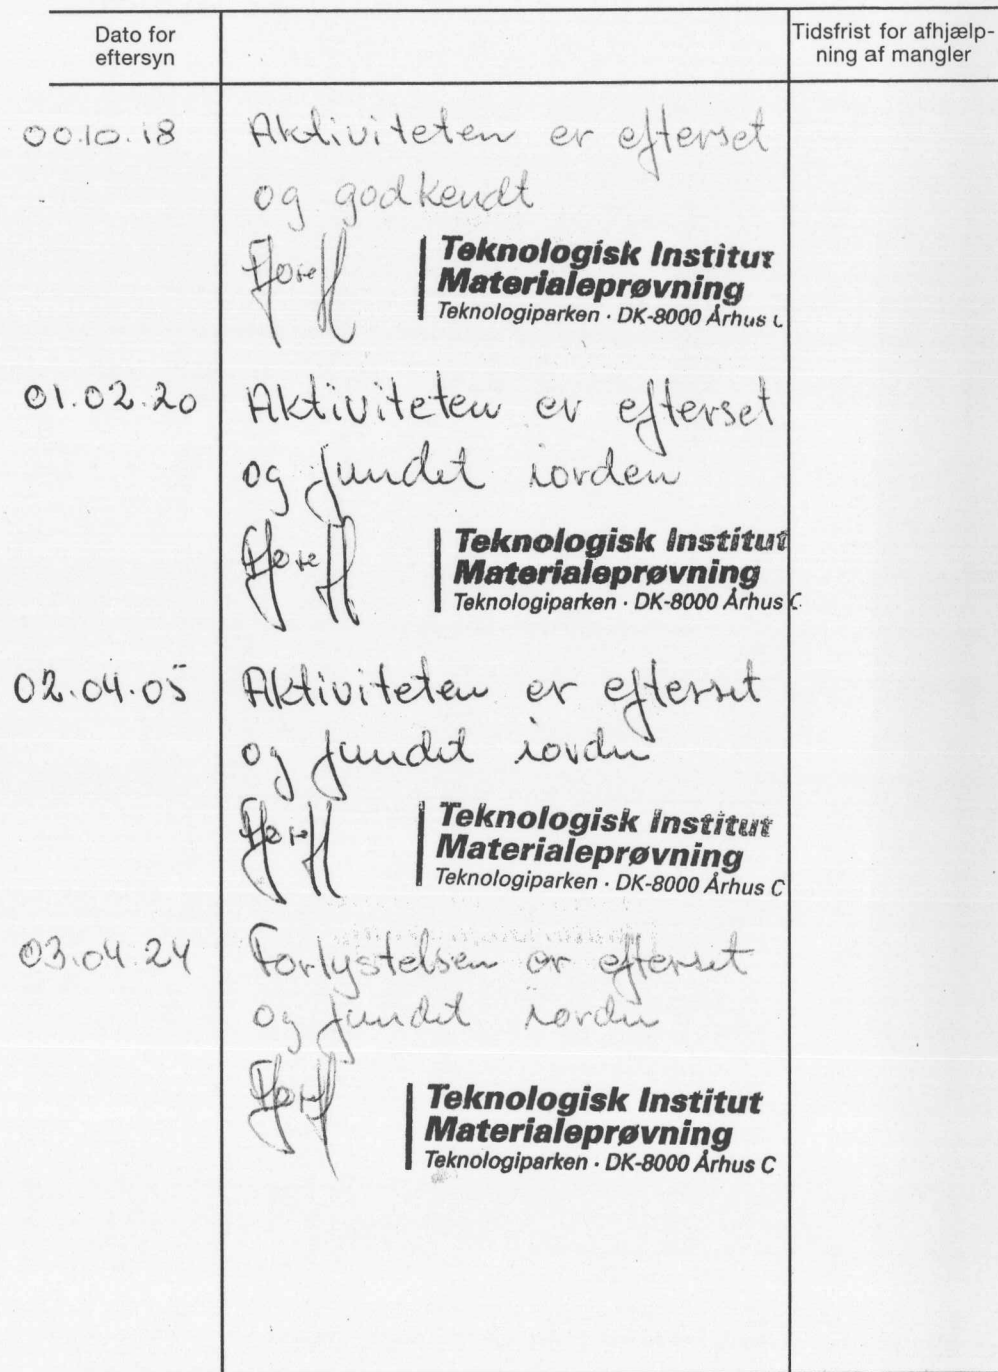 Dato for
eftersyn
Tidsfrist for afhjælp-
ning af mangler
00.10.18
Aktiviteten er efterset
og godkendt
Teknologisk Institut
Materialeprøvning
Teknologiparken · DK-8000 Århus C
01.02.20
Aktiviteten er efterset
og fundet iorden
Teknologisk Institut
Materialeprøvning
Teknologiparken · DK-8000 Århus C
02.04.05
Aktiviteten er efterset
og fundet iorden
Teknologisk Institut
Materialeprøvning
Teknologiparken · DK-8000 Århus C
03.04.24
Forlystelsen er efterset
og fundet iorden
Teknologisk Institut
Materialeprøvning
Teknologiparken · DK-8000 Århus C